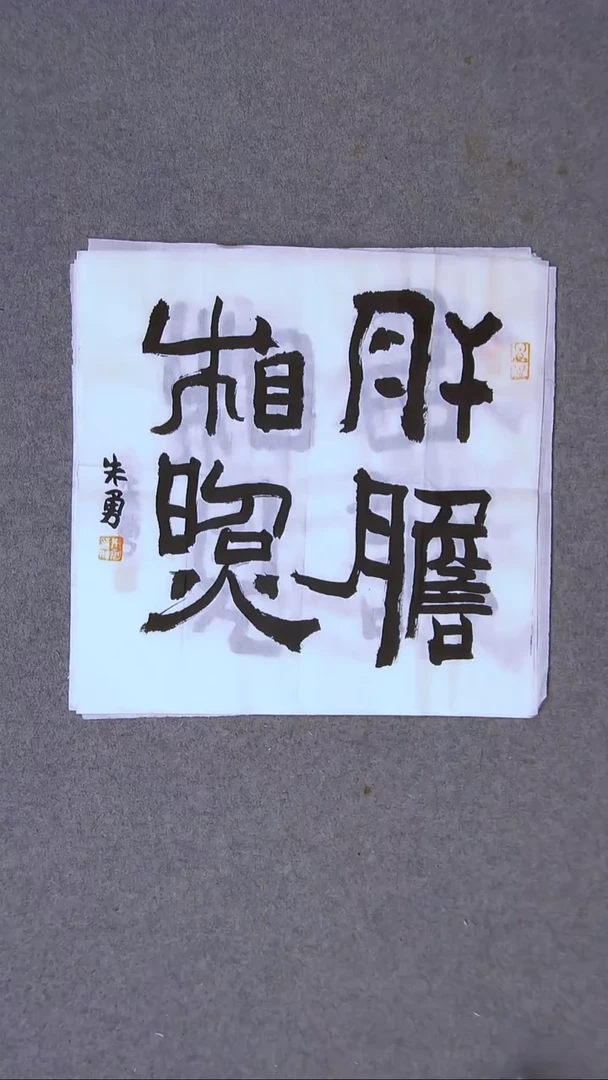 肝膽
相照
朱勇